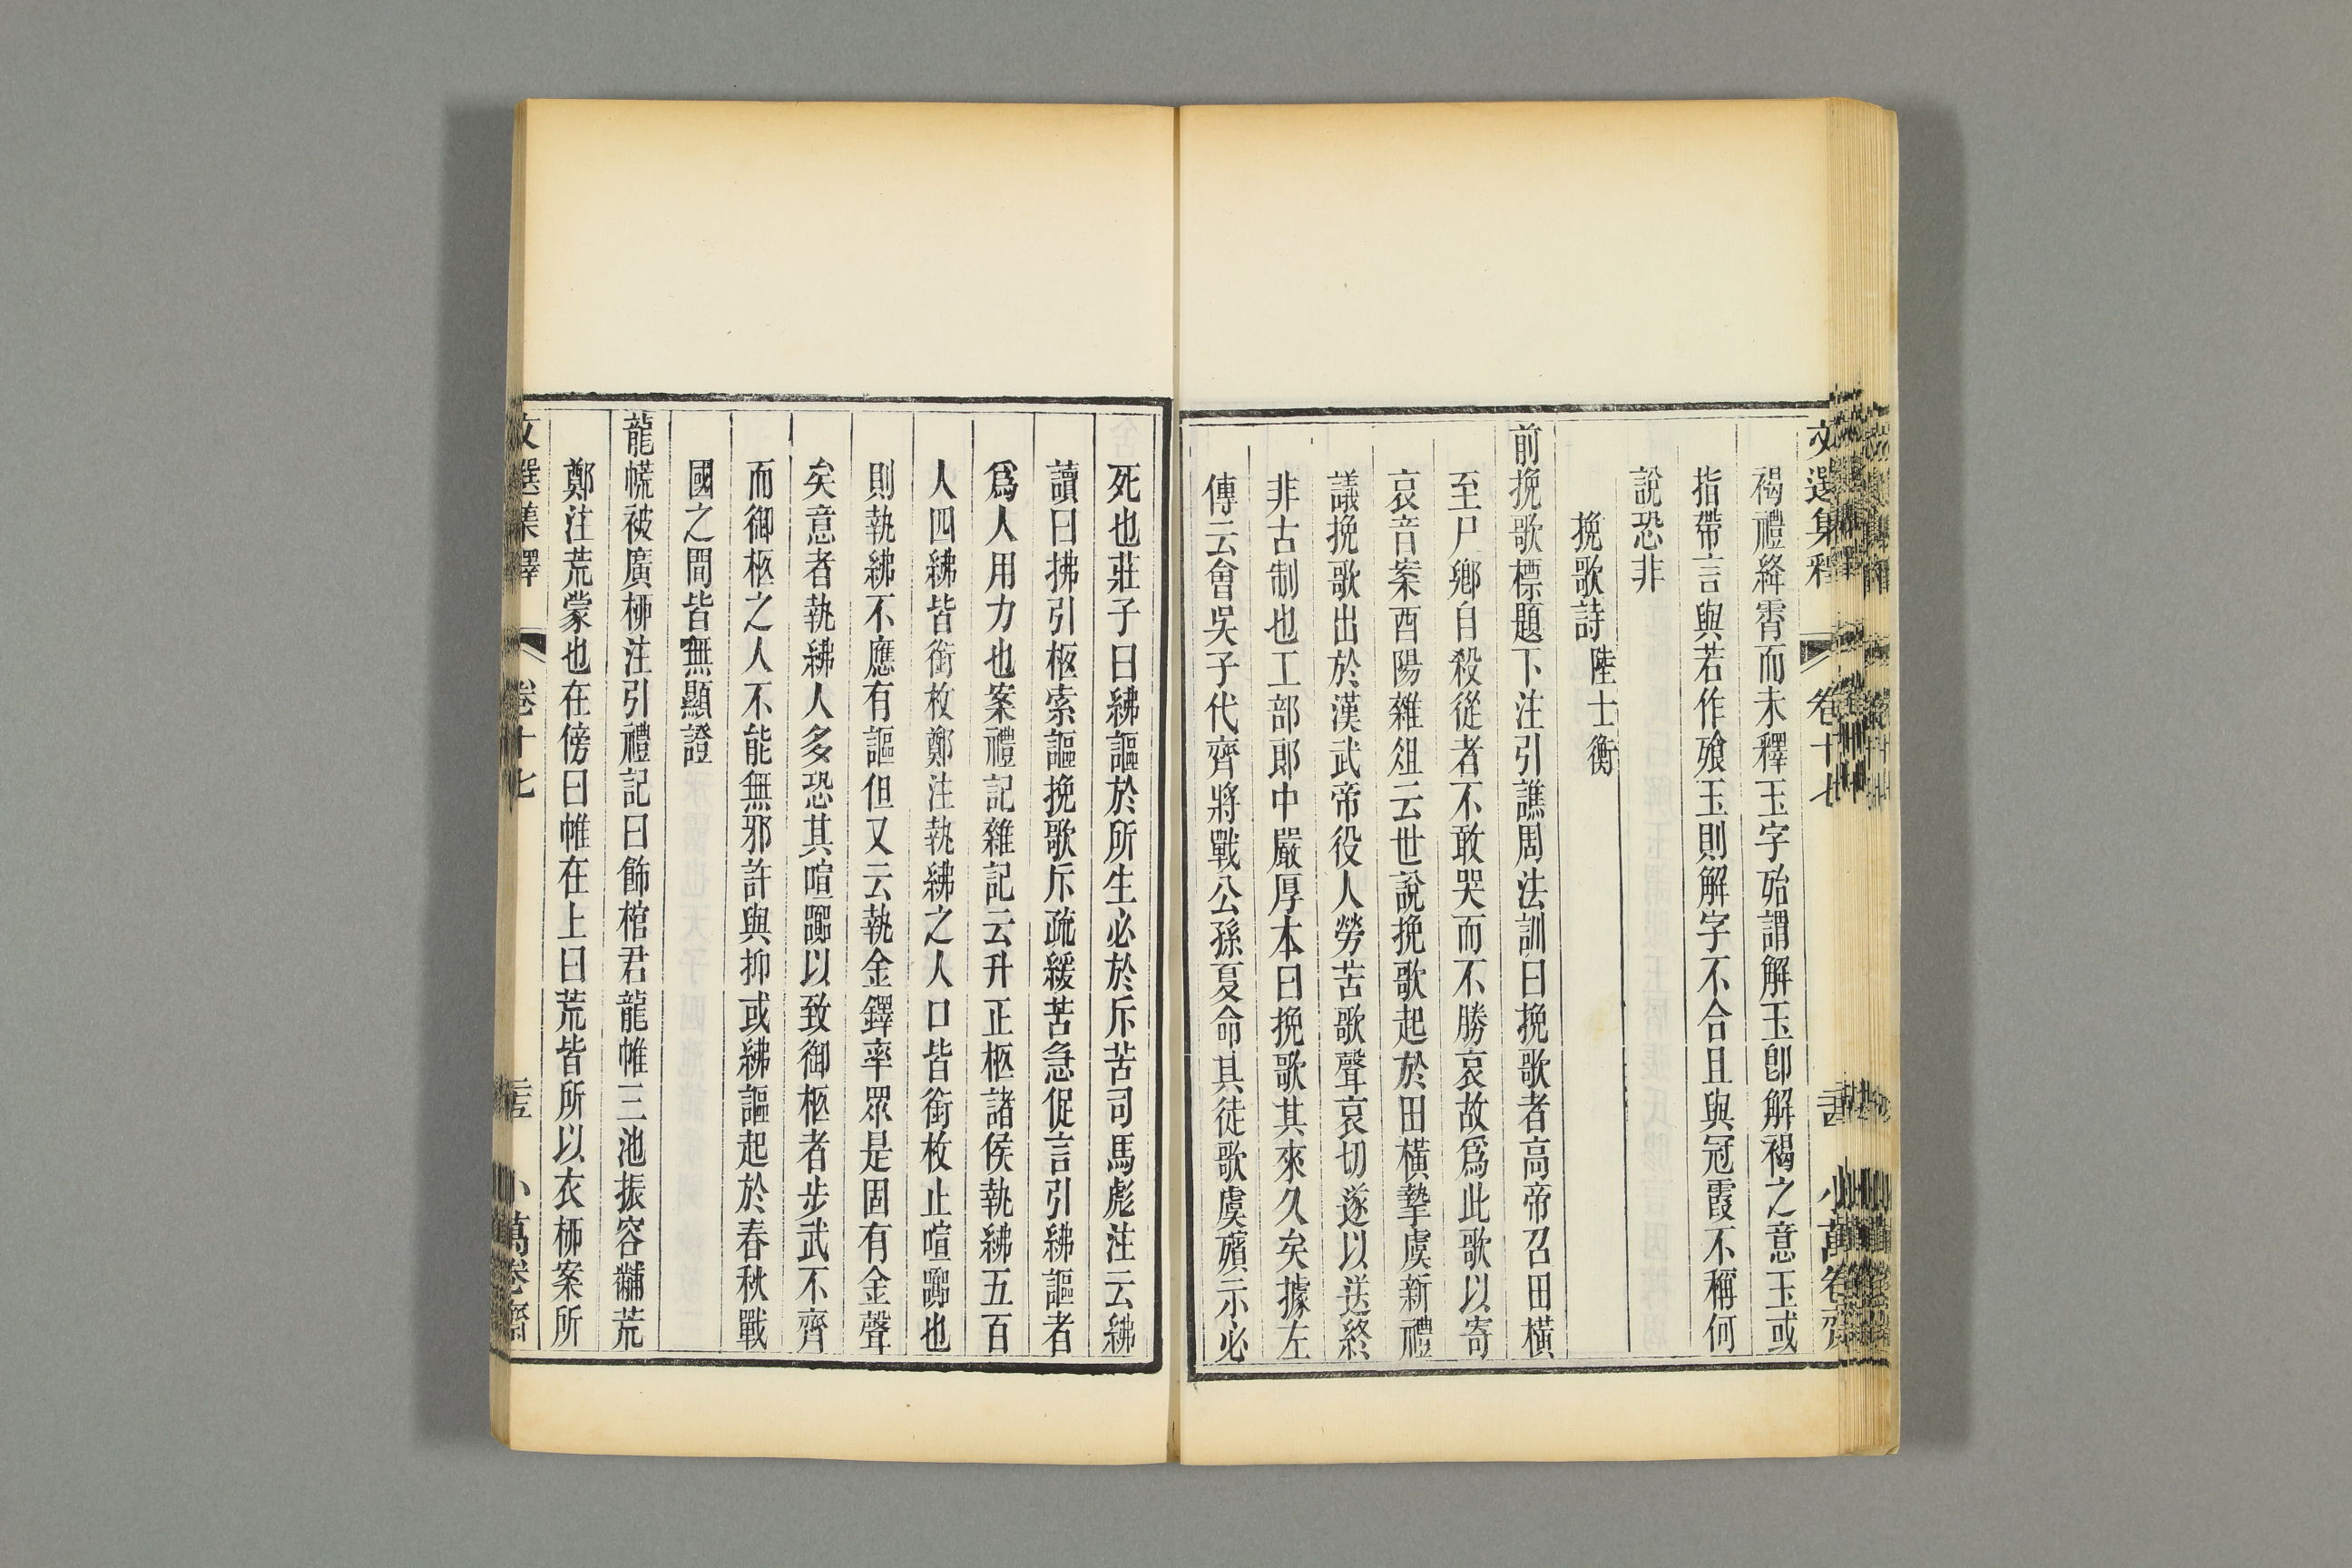 文選集釋 卷十七 小萬卷齋
褐禮絳霄而未釋玉字殆謂解玉卽解褐之意玉或
指帶言與若作飱玉則解字不合且與冠霞不稱何
說恐非
挽歌詩 陸士衡
前挽歌標題下注引譙周法訓曰挽歌者高帝召田橫
至尸鄉自殺從者不敢哭而不勝哀故爲此歌以寄
哀音案酉陽雜俎云世說挽歌起於田橫摯虞新禮
議挽歌出於漢武帝役人勞苦歌聲哀切遂以送終
非古制也工部郎中嚴厚本曰挽歌其來久矣據左
傳云會吳子代齊將戰公孫夏命其徒歌虞殯示必
死也莊子曰紼謳於所生必於斥苦司馬彪注云紼
讀曰拂引柩索謳挽歌斥疏緩苦急促言引紼謳者
爲人用力也案禮記雜記云升正柩諸侯執紼五百
人四紼皆銜枚鄭注執紼之人口皆銜枚止喧嚻也
則執紼不應有謳但又云執金鐸率眾是固有金聲
矣意者執紼人多恐其喧嚻以致御柩者步武不齊
而御柩之人不能無邪許與抑或紼謳起於春秋戰
國之間皆無顯證
龍㡆被廣柳注引禮記曰飾棺君龍帷三池振容黼荒
鄭注荒蒙也在傍曰帷在上曰荒皆所以衣柳案所
文選集釋 卷十七 小萬卷齋